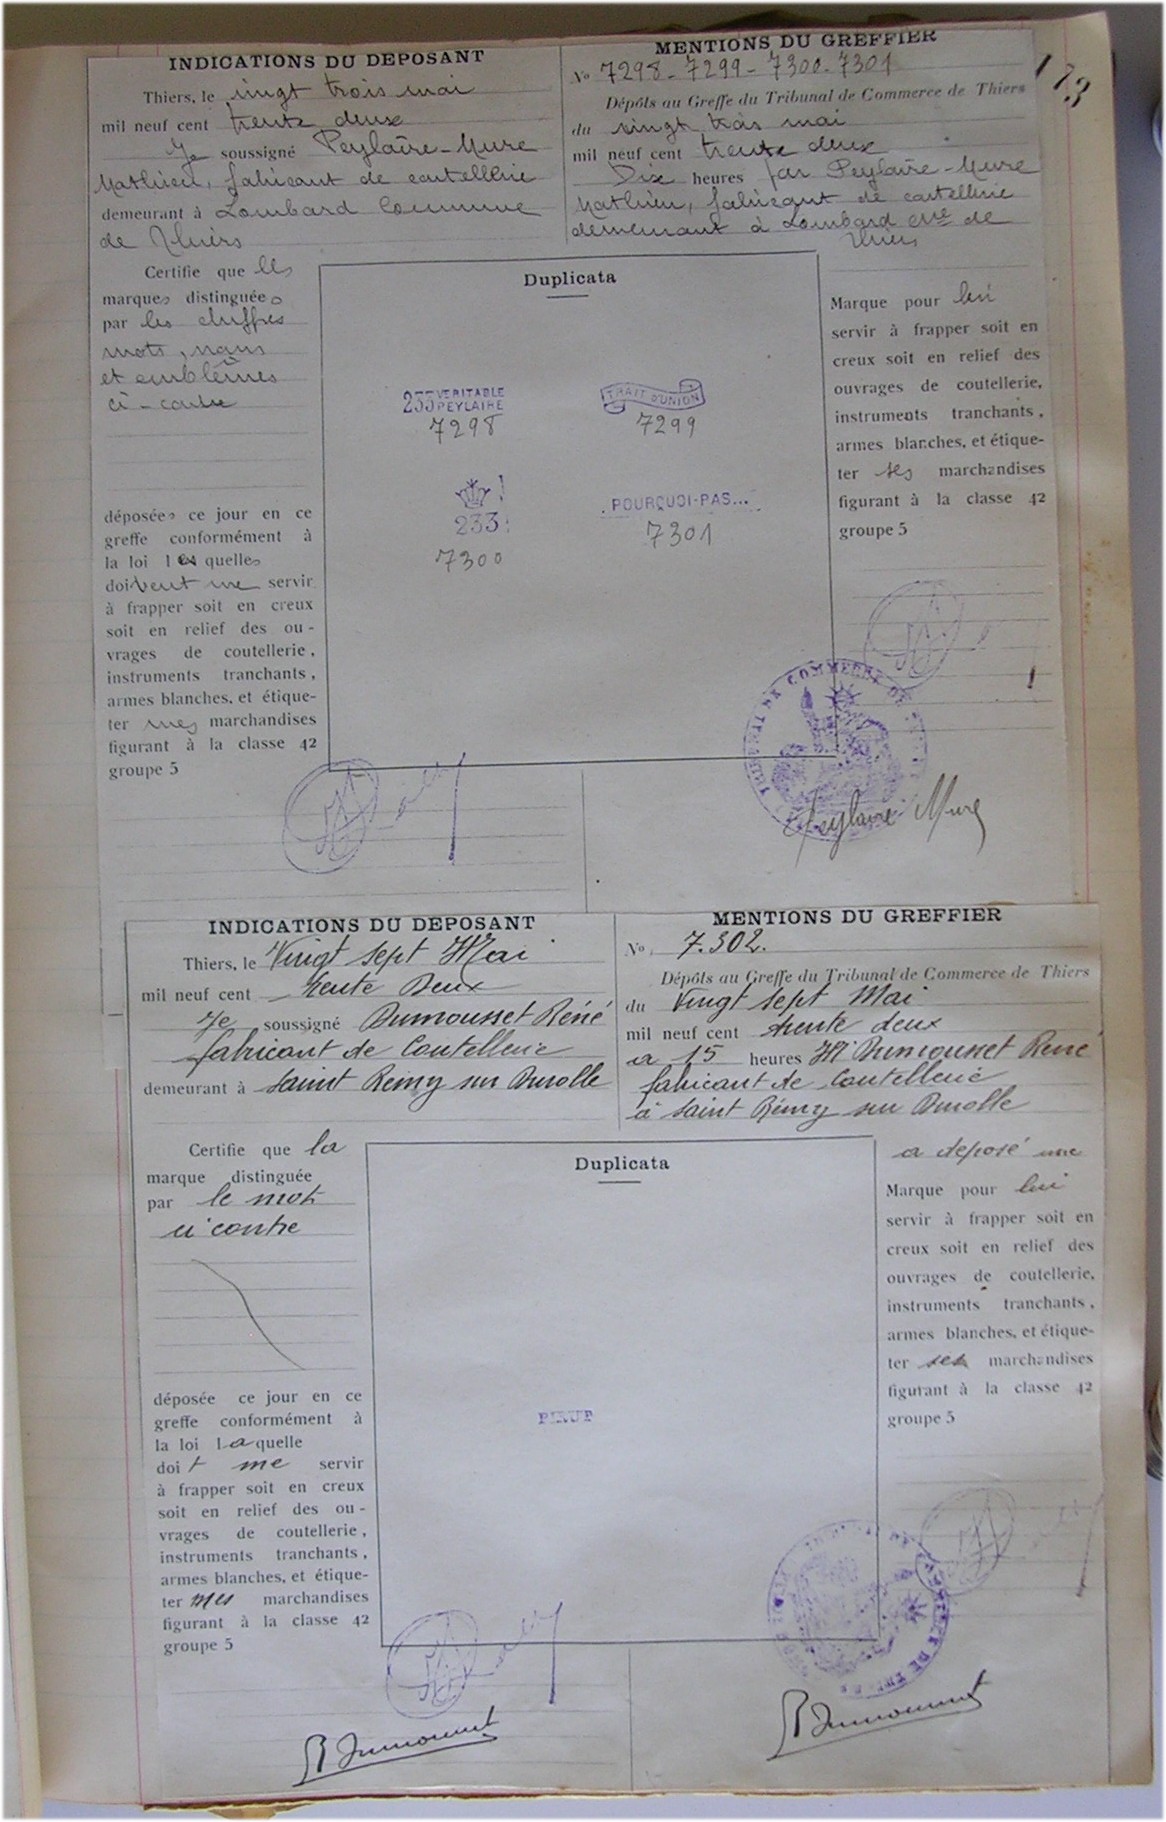 173
INDICATIONS DU DEPOSANT
Thiers, le vingt trois mai
mil neuf cent trente deux
Je soussigné Peylaire-Mure
Mathieu, fabricant de coutellerie
demeurant à Lombard Commune
de Thiers
MENTIONS DU GREFFIER
No 7298-7299-7300-7301
Dépôts au Greffe du Tribunal de Commerce de Thiers
du vingt trois mai
mil neuf cent trente deux
Dix heures par Peylaire-Mure
Mathieu, fabricant de coutellerie
demeurant à Lombard cne de
Thiers
Certifie que les
marques distinguées
par les chiffres
mots, noms
et emblêmes
ci-contre
déposées ce jour en ce
greffe conformément à
la loi lesquelles
doivent me servir
à frapper soit en creux
soit en relief des ou-
vrages de coutellerie,
instruments tranchants,
armes blanches, et étique-
ter mes marchandises
figurant à la classe 42
groupe 5
Duplicata
233 VERITABLE
PEYLAIRE
7298
TRAIT D'UNION
7299
233
7300
POURQUOI-PAS...
7301
Marque pour lui
servir à frapper soit en
creux soit en relief des
ouvrages de coutellerie,
instruments tranchants,
armes blanches, et étique-
ter ses marchandises
figurant à la classe 42
groupe 5
Peylaire-Mure
INDICATIONS DU DEPOSANT
Thiers, le Vingt sept Mai
mil neuf cent trente Deux
Je soussigné Dumousset Réné
fabricant de Coutellerie
demeurant à Saint Remy sur Durolle
MENTIONS DU GREFFIER
No 7.302.
Dépôts au Greffe du Tribunal de Commerce de Thiers
du Vingt sept Mai
mil neuf cent trente deux
a 15 heures Mr Dumousset René
fabricant de Coutellerie
à Saint Rémy sur Durolle
Certifie que la
marque distinguée
par le mot
ci contre
déposée ce jour en ce
greffe conformément à
la loi laquelle
doit me servir
à frapper soit en creux
soit en relief des ou-
vrages de coutellerie,
instruments tranchants,
armes blanches, et étique-
ter mes marchandises
figurant à la classe 42
groupe 5
Duplicata
a déposé une
Marque pour lui
servir à frapper soit en
creux soit en relief des
ouvrages de coutellerie,
instruments tranchants,
armes blanches, et étique-
ter ses marchandises
figurant à la classe 42
groupe 5
R Dumousset
R Dumousset